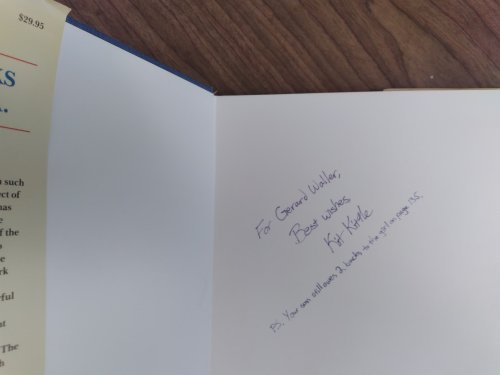 $29.95
KS
.
such
ect of
has
e
f the
o
e
rk
rful
nt
The
h
For Gerard Waller,
Best wishes
Kit Kittle
PS. Your son still owes 2 bucks to the girl on page 135.